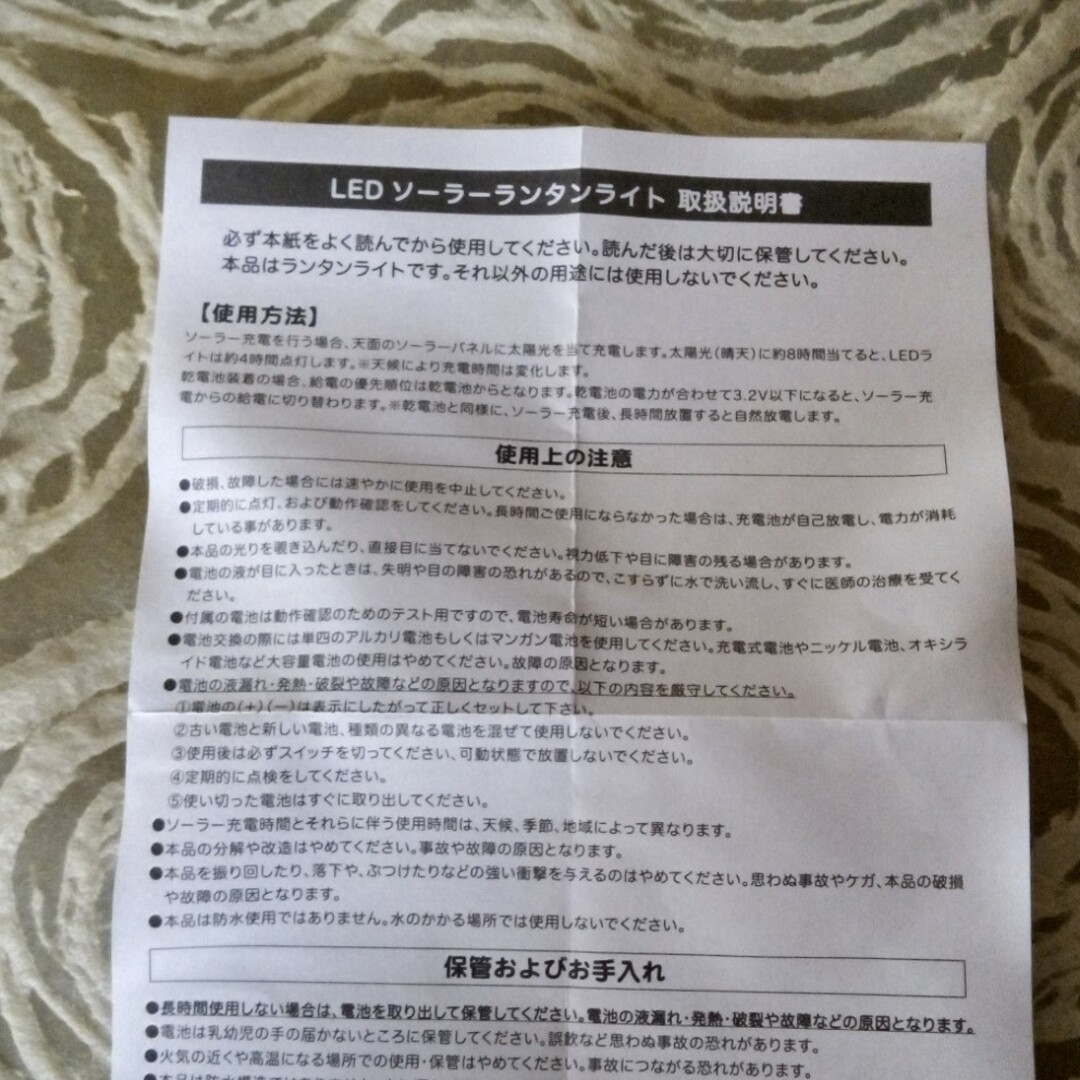 LED ソーラーランタンライト 取扱説明書
必ず本紙をよく読んでから使用してください。読んだ後は大切に保管してください。
本品はランタンライトです。それ以外の用途には使用しないでください。
【使用方法】
ソーラー充電を行う場合、天面のソーラーパネルに太陽光を当て充電します。太陽光(晴天)に約8時間当てると、LEDラ
イトは約4時間点灯します。※天候により充電時間は変化します。
乾電池装着の場合、給電の優先順位は乾電池からとなります。乾電池の電力が合わせて3.2V以下になると、ソーラー充
電からの給電に切り替わります。※乾電池と同様に、ソーラー充電後、長時間放置すると自然放電します。
使用上の注意
●破損、故障した場合には速やかに使用を中止してください。
●定期的に点灯、および動作確認をしてください。長時間ご使用にならなかった場合は、充電池が自己放電し、電力が消耗
している事があります。
●本品の光りを覗き込んだり、直接目に当てないでください。視力低下や目に障害の残る場合があります。
●電池の液が目に入ったときは、失明や目の障害の恐れがあるので、こすらずに水で洗い流し、すぐに医師の治療を受てく
ださい。
●付属の電池は動作確認のためのテスト用ですので、電池寿命が短い場合があります。
●電池交換の際には単四のアルカリ電池もしくはマンガン電池を使用してください。充電式電池やニッケル電池、オキシラ
イド電池など大容量電池の使用はやめてください。故障の原因となります。
●電池の液漏れ・発熱・破裂や故障などの原因となりますので、以下の内容を厳守してください。
①電池の(+)(−)は表示にしたがって正しくセットして下さい。
②古い電池と新しい電池、種類の異なる電池を混ぜて使用しないでください。
③使用後は必ずスイッチを切ってください、可動状態で放置しないでください。
④定期的に点検をしてください。
⑤使い切った電池はすぐに取り出してください。
●ソーラー充電時間とそれらに伴う使用時間は、天候、季節、地域によって異なります。
●本品の分解や改造はやめてください。事故や故障の原因となります。
●本品を振り回したり、落下や、ぶつけたりなどの強い衝撃を与えるのはやめてください。思わぬ事故やケガ、本品の破損
や故障の原因となります。
●本品は防水使用ではありません。水のかかる場所では使用しないでください。
保管およびお手入れ
●長時間使用しない場合は、電池を取り出して保管してください。電池の液漏れ・発熱・破裂や故障などの原因となります。
●電池は乳幼児の手の届かないところに保管してください。誤飲など思わぬ事故の恐れがあります。
●火気の近くや高温になる場所での使用・保管はやめてください。事故につながる恐れがあります。